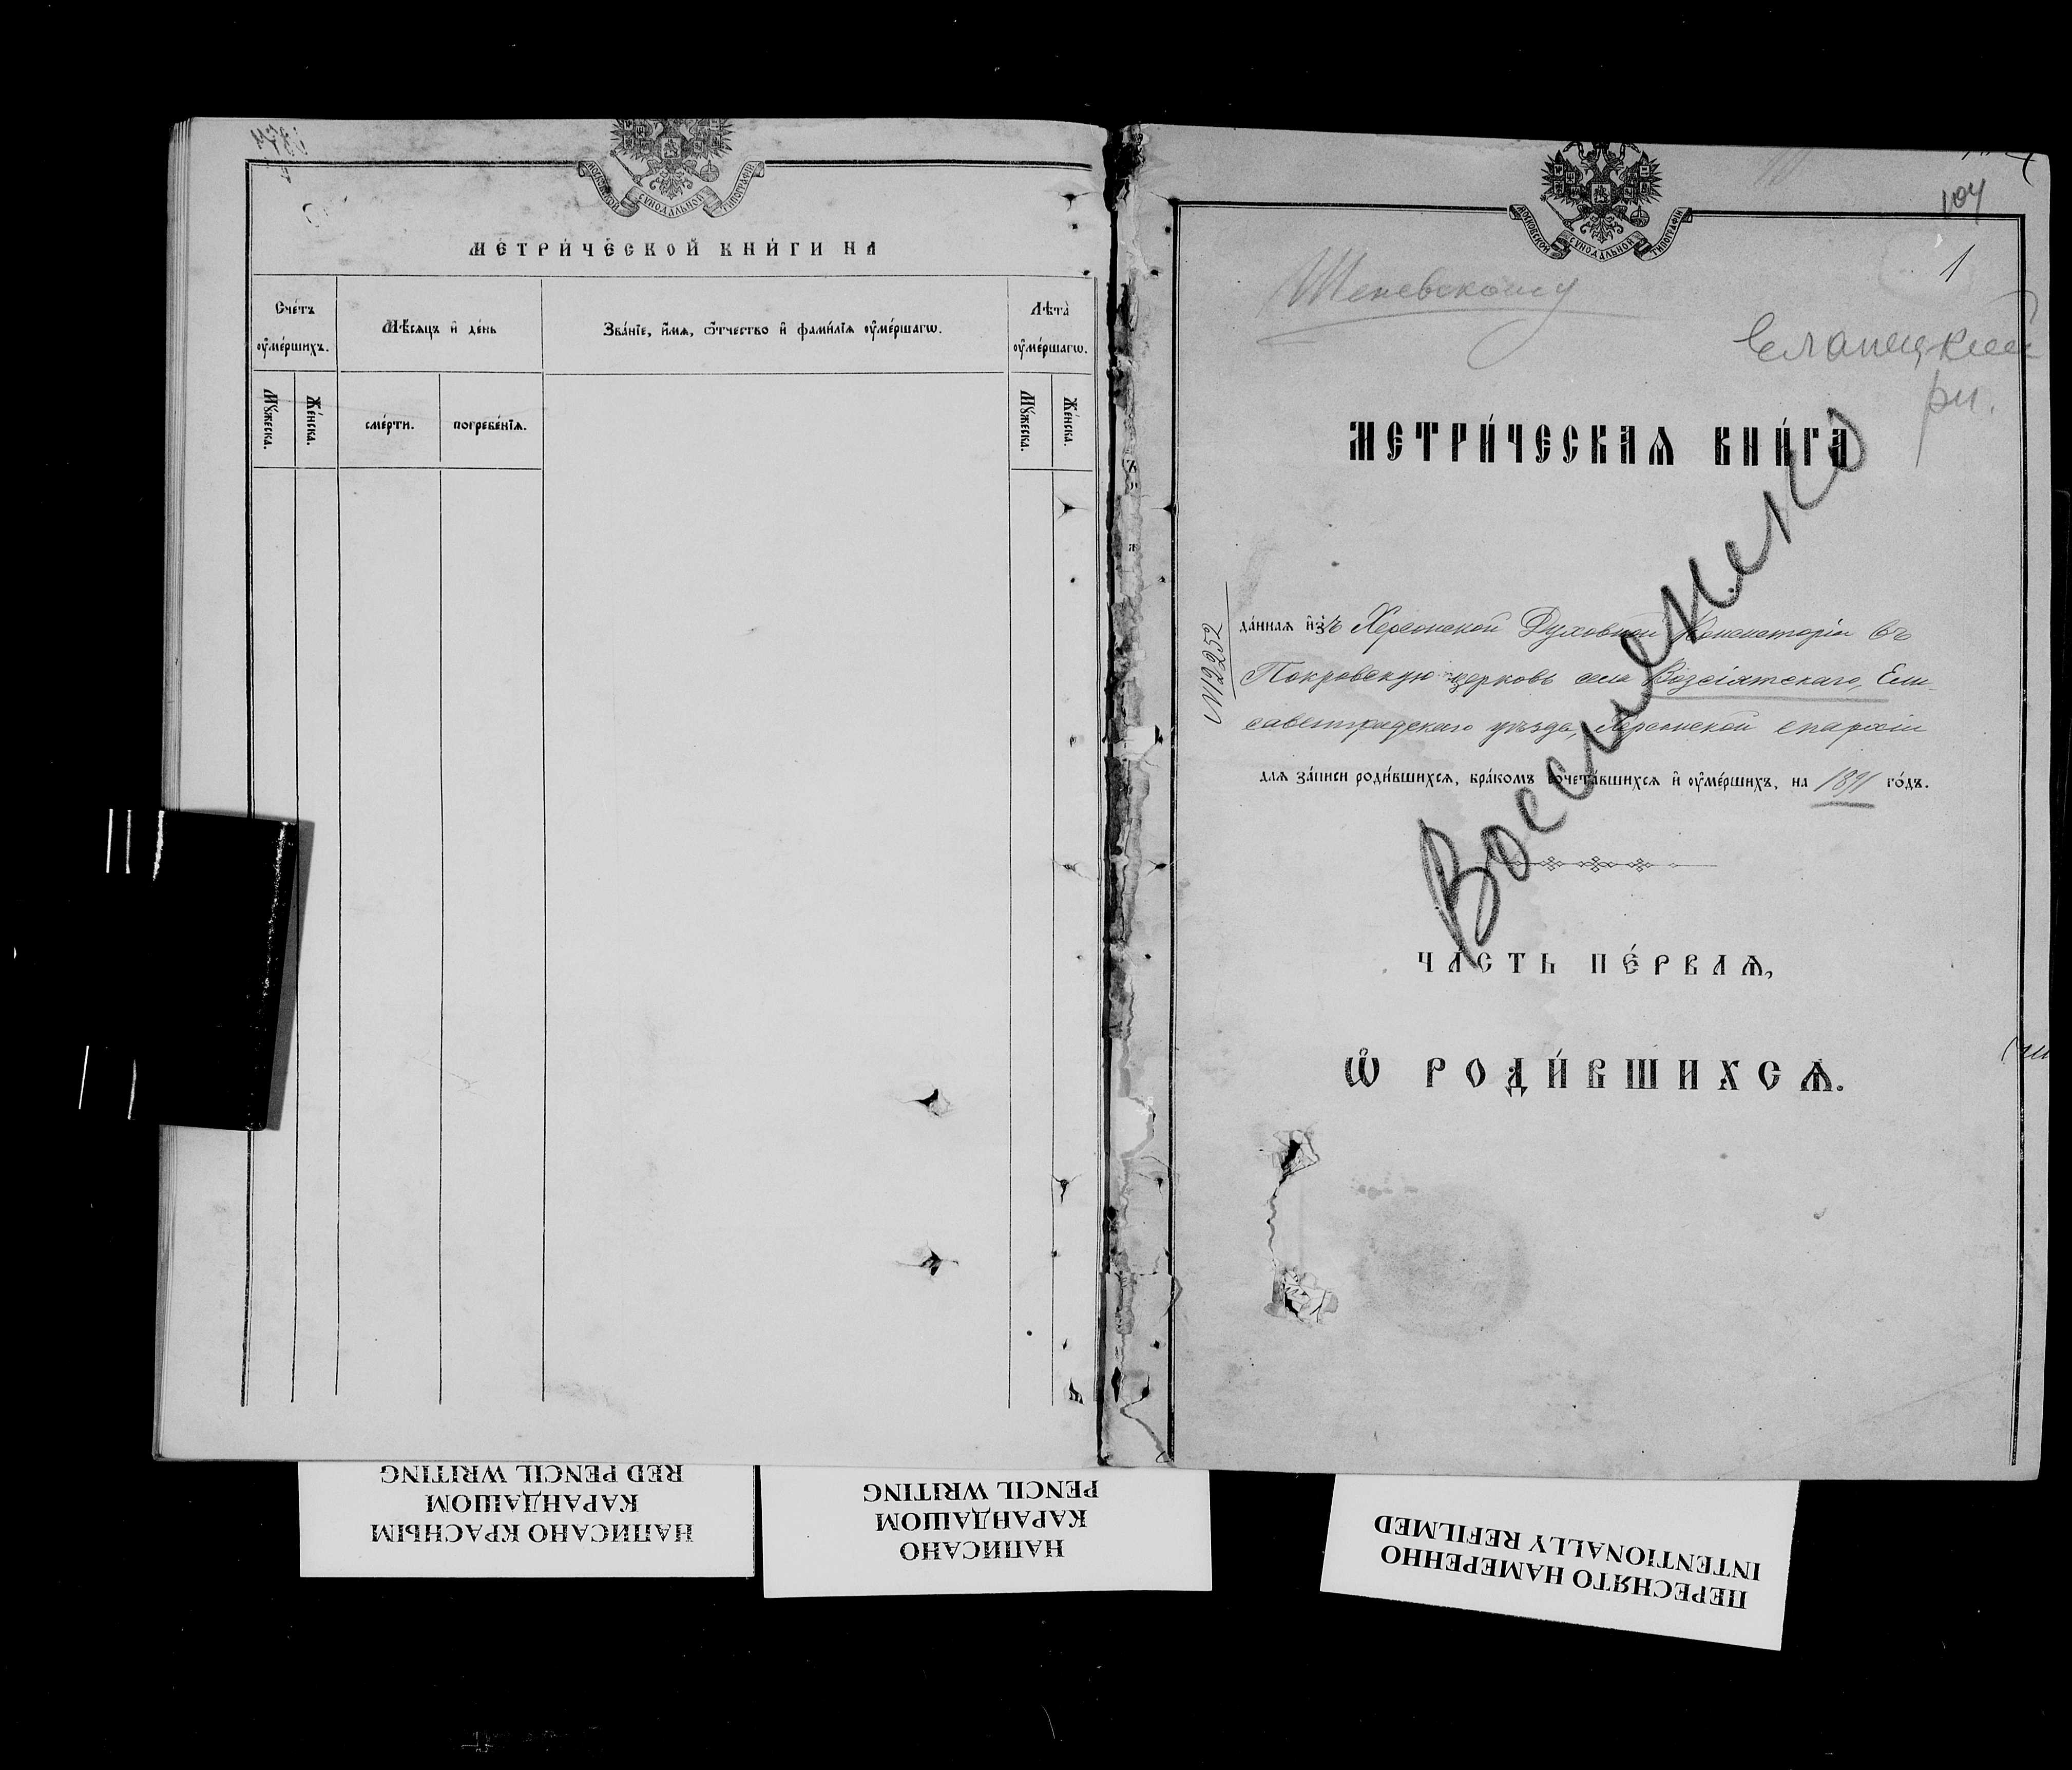 МОСКОВСКОЙ СѴНОДАЛЬНОЙ ТИПОГРАФІИ
МЕТРИ́ЧЕСКОЙ КНИ́ГИ НА
Сче́тъ оу҆ме́ршихъ.
Мѣ́сяцъ и҆ де́нь
Зва́нїе, и҆́мѧ, ѻ҆́тчество и҆ фами́лїѧ оу҆ме́ршагѡ.
Лѣ́та оу҆ме́ршагѡ.
Мꙋ́жеска.
Же́нска.
сме́рти.
погребе́нїѧ.
Мꙋ́жеска.
Же́нска.
МОСКОВСКОЙ СѴНОДАЛЬНОЙ ТИПОГРАФІИ
104
1
Еланецкий
рн.
МЕТРИ́ЧЕСКАѦ КНИ́ГА
№12252
да́нная и҆зъ Херсонской Духовной Консисторіи въ
Покровскую церковь села Возсіятскаго, Ели-
саветградскаго уѣзда, Херсонской епархіи
для за́писи роди́вшихся, бра́комъ сочета́вшихся и҆ оу҆ме́ршихъ, на 1891 го́дъ.
ЧА́СТЬ ПЕ́РВАѦ,
Ѽ РОДИ́ВШИХСѦ.
НАПИСАНО КРАСНЫМ
КАРАНДАШОМ
RED PENCIL WRITING
НАПИСАНО
КАРАНДАШОМ
PENCIL WRITING
ПЕРЕСНЯТО НАМЕРЕННО
INTENTIONALLY REFILMED